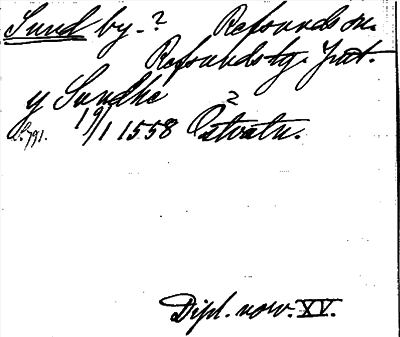 Sund by-? Refsunds sn.
Refsunds tg. Jmt.
y Sundhe
s. 791. 19/1 1558 Östvatn. ?
Dipl. norv. XV.